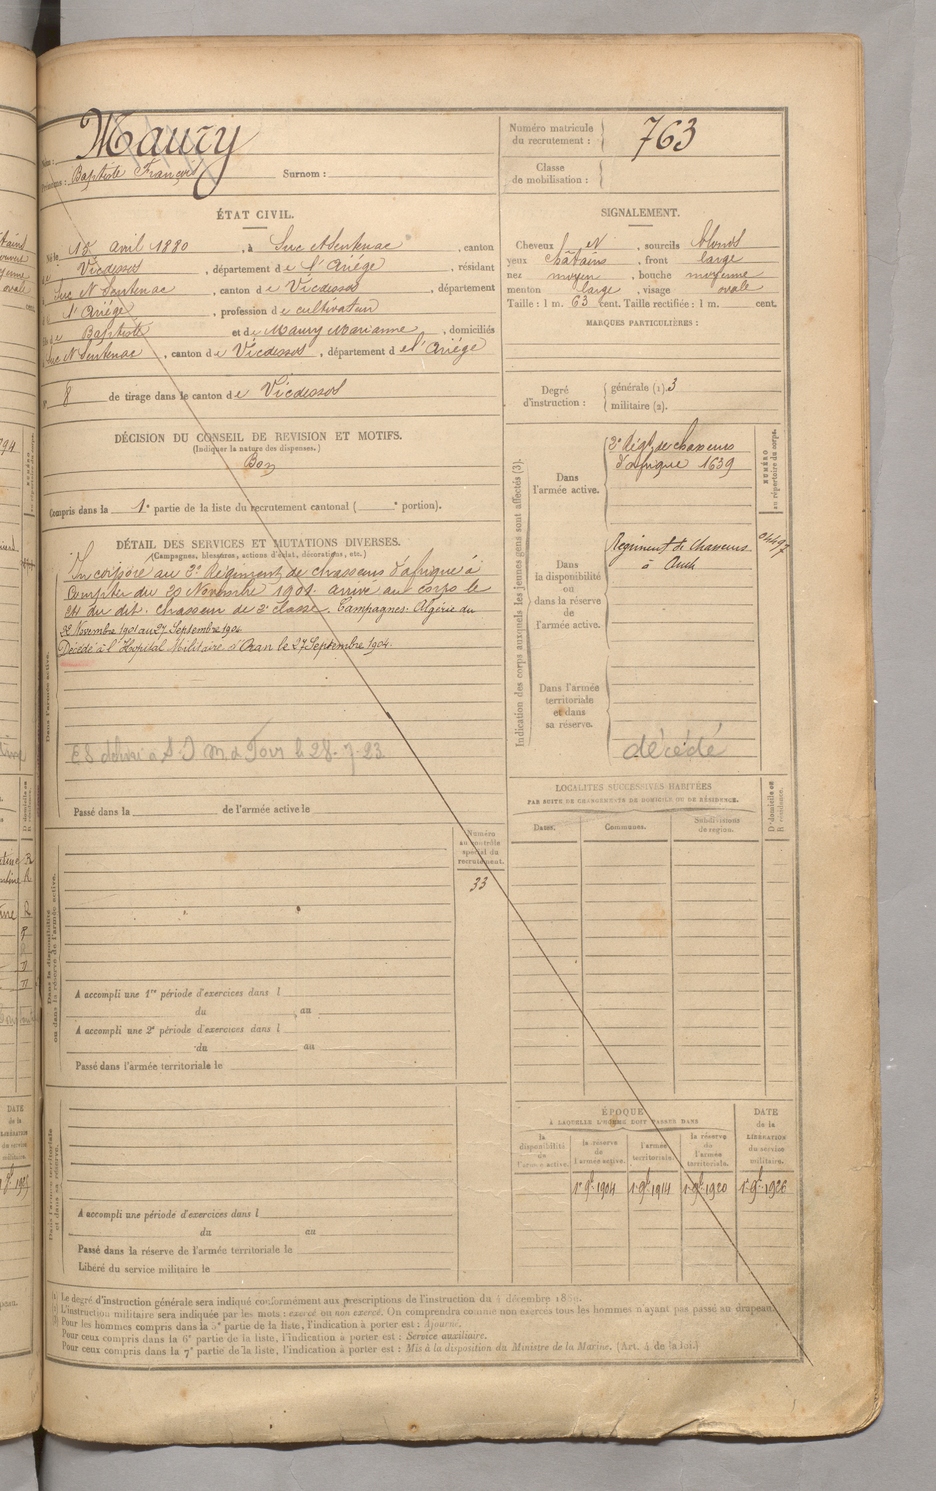 Nom : Maury
Prénoms : Baptiste François Surnom :
Numéro matricule du recrutement : 763
Classe de mobilisation :
ÉTAT CIVIL.
Né le 15 avril 1880, à Suc et Sentenac, canton
de Vicdessos, département de l'Ariége, résidant
à Suc et Sentenac, canton de Vicdessos, département
d l'Ariége, profession de cultivateur
fils de Baptiste et de Maury Marianne, domiciliés
à Suc et Sentenac, canton de Vicdessos, département de l'Ariége
N° 8 de tirage dans le canton de Vicdessos
SIGNALEMENT.
Cheveux et, sourcils blonds
yeux châtains, front large
nez moyen, bouche moyenne
menton large, visage ovale
Taille : 1 m. 63 cent. Taille rectifiée : 1 m. cent.
MARQUES PARTICULIÈRES :
Degré d'instruction : générale (1). 3
militaire (2).
DÉCISION DU CONSEIL DE REVISION ET MOTIFS.
(Indiquer la nature des dispenses.)
Bon
Compris dans la 1e partie de la liste du recrutement cantonal ( e portion).
DÉTAIL DES SERVICES ET MUTATIONS DIVERSES.
(Campagnes, blessures, actions d'éclat, décorations, etc.)
Incorporé au 2e Régiment de chasseurs d'afrique à
Compter du 20 Novembre 1901. arrivé au corps le
et du dit. chasseur de 2e classe. Campagnes: Algérie du
22 Novembre 1901 au 27 Septembre 1904
Décédé à l'Hopital Militaire d'Oran le 27 Septembre 1904.
le 28-7-23
Passé dans la de l'armée active le
Dans l'armée active.
Indication des corps auxquels les jeunes gens sont affectés (3).
NUMÉRO au répertoire du corps.
Dans l'armée active.
2e Régt de chasseurs
d'afrique 1639
Dans la disponibilité ou dans la réserve de l'armée active.
Régiment de Chasseurs
à Auch
Dans l'armée territoriale et dans sa réserve.
décédé
LOCALITÉS SUCCESSIVES HABITÉES
PAR SUITE DE CHANGEMENTS DE DOMICILE OU DE RÉSIDENCE.
Dates. Communes. Subdivisions de région. D. domicile ou R. résidence.
Numéro au contrôle spécial du recrutement.
33
Dans la disponibilité ou dans la réserve de l'armée active.
A accompli une 1re période d'exercices dans l
du au
A accompli une 2e période d'exercices dans l
du au
Passé dans l'armée territoriale le
Dans l'armée territoriale et dans sa réserve.
A accompli une période d'exercices dans l
du au
Passé dans la réserve de l'armée territoriale le
Libéré du service militaire le
ÉPOQUE
À LAQUELLE L'HOMME DOIT PASSER DANS
la disponibilité de l'armée active. la réserve de l'armée active. l'armée territoriale. la réserve de l'armée territoriale.
DATE de la LIBÉRATION du service militaire.
1er 9bre 1904 1er 9bre 1914 1er 9bre 1920 1er 9bre 1926
(1) Le degré d'instruction générale sera indiqué conformément aux prescriptions de l'instruction du 4 décembre 1889.
(2) L'instruction militaire sera indiquée par les mots : exercé ou non exercé. On comprendra comme non exercés tous les hommes n'ayant pas passé au drapeau.
(3) Pour les hommes compris dans la 5e partie de la liste, l'indication à porter est : Ajourné.
Pour ceux compris dans la 6e partie de la liste, l'indication à porter est : Service auxiliaire.
Pour ceux compris dans la 7e partie de la liste, l'indication à porter est : Mis à la disposition du Ministre de la Marine. (Art. 4 de la loi.)